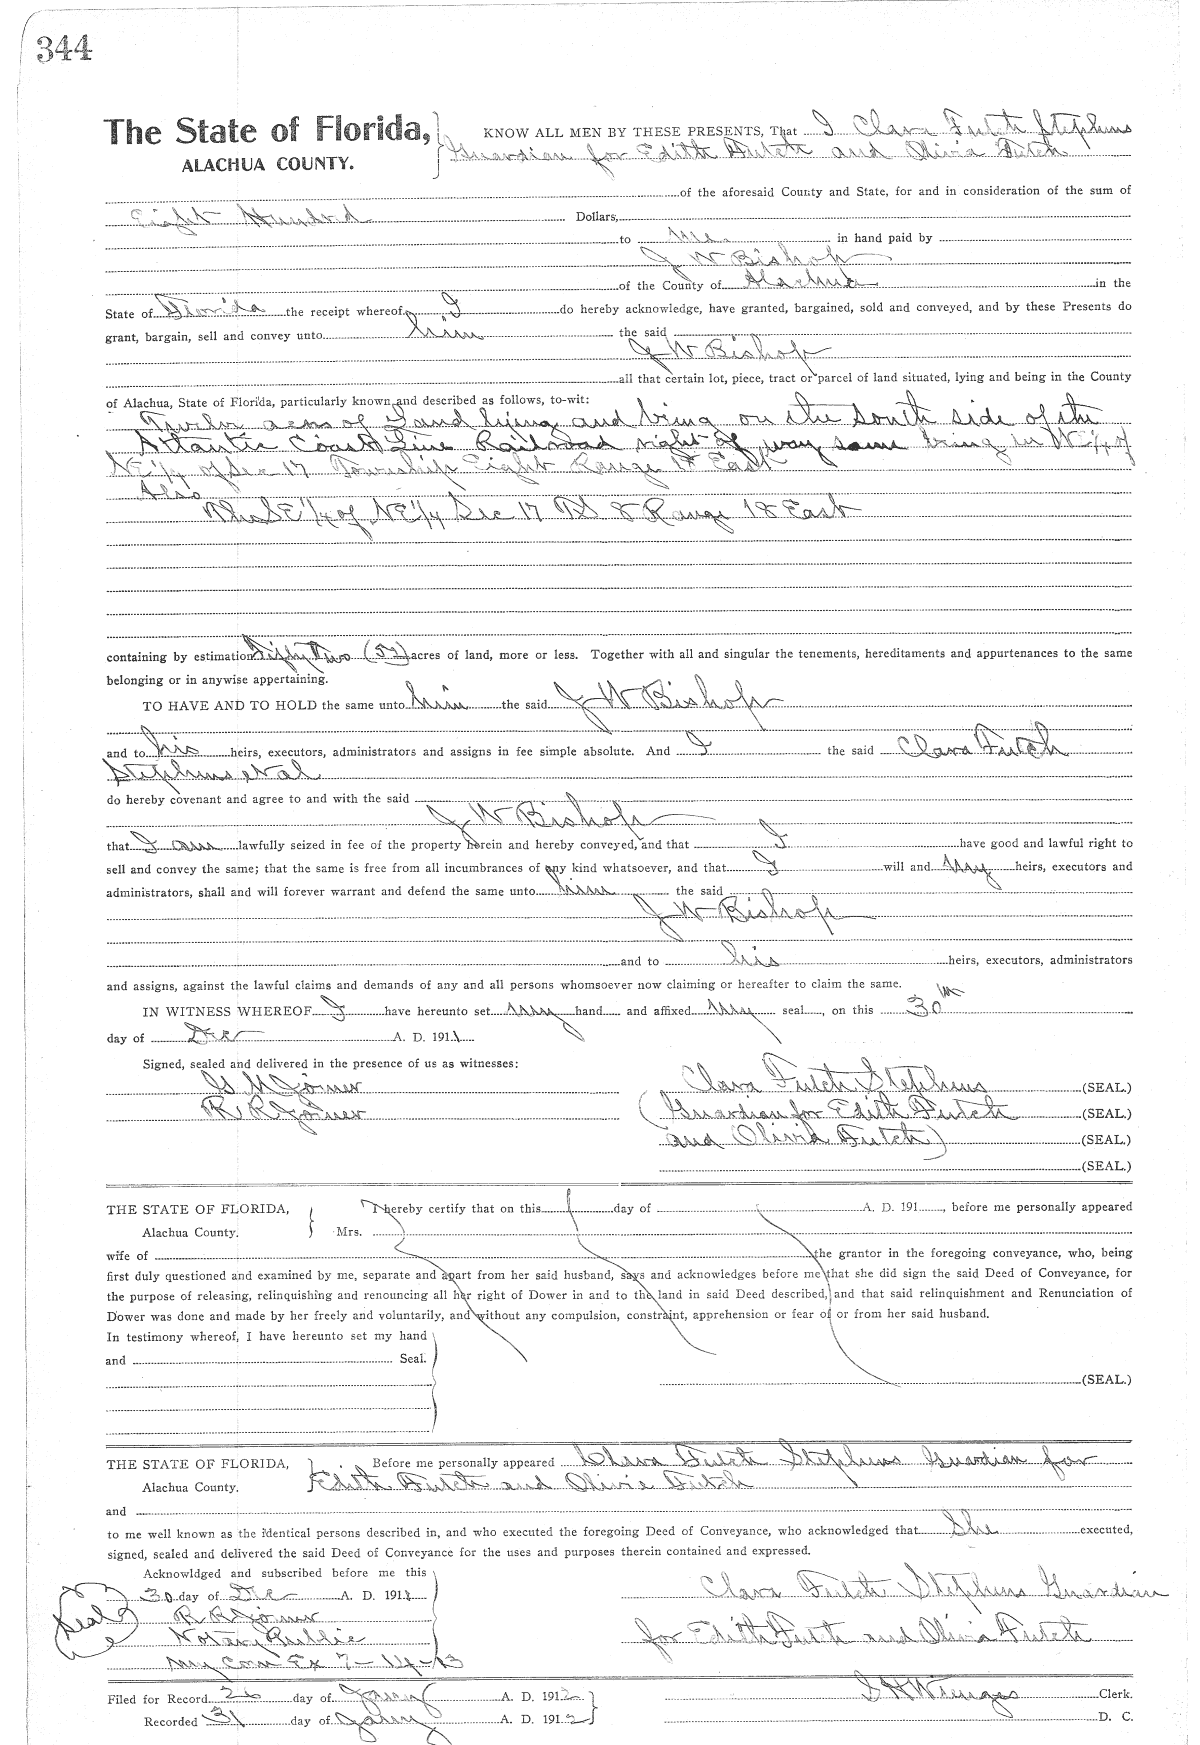 344
The State of Florida, KNOW ALL MEN BY THESE PRESENTS, That I Clara Futch Stephens
ALACHUA COUNTY. Guardian for Edith Futch and Olivia Futch
of the aforesaid County and State, for and in consideration of the sum of
Eight Hundred Dollars,
to me in hand paid by
J W Bishop
of the County of Alachua in the
State of Florida the receipt whereof I do hereby acknowledge, have granted, bargained, sold and conveyed, and by these Presents do
grant, bargain, sell and convey unto him the said
J W Bishop
all that certain lot, piece, tract or parcel of land situated, lying and being in the County
of Alachua, State of Florida, particularly known and described as follows, to-wit:
Twelve acres of Land lying and being on the South side of the
Atlantic Coast Line Railroad right of way same being in NE 1/4 of
NE 1/4 of Sec 17 Township Eight Range 18 East
Also
The SE 1/4 of NE 1/4 Sec 17 TS 8 Range 18 East
containing by estimation Fifty Two (52) acres of land, more or less. Together with all and singular the tenements, hereditaments and appurtenances to the same
belonging or in anywise appertaining.
TO HAVE AND TO HOLD the same unto him the said J W Bishop
and to his heirs, executors, administrators and assigns in fee simple absolute. And I the said Clara Futch
Stephens et al
do hereby covenant and agree to and with the said
J W Bishop
that I am lawfully seized in fee of the property herein and hereby conveyed, and that I have good and lawful right to
sell and convey the same; that the same is free from all incumbrances of any kind whatsoever, and that I will and my heirs, executors and
administrators, shall and will forever warrant and defend the same unto him the said
J W Bishop
and to his heirs, executors, administrators
and assigns, against the lawful claims and demands of any and all persons whomsoever now claiming or hereafter to claim the same.
IN WITNESS WHEREOF I have hereunto set my hand and affixed my seal, on this 30th
day of Dec A. D. 1911.
Signed, sealed and delivered in the presence of us as witnesses:
G M Joiner Clara Futch Stephens (SEAL.)
R R Joiner (Guardian for Edith Futch (SEAL.)
and Olivia Futch) (SEAL.)
(SEAL.)
THE STATE OF FLORIDA, I hereby certify that on this day of A. D. 191 , before me personally appeared
Alachua County. Mrs.
wife of the grantor in the foregoing conveyance, who, being
first duly questioned and examined by me, separate and apart from her said husband, says and acknowledges before me that she did sign the said Deed of Conveyance, for
the purpose of releasing, relinquishing and renouncing all her right of Dower in and to the land in said Deed described, and that said relinquishment and Renunciation of
Dower was done and made by her freely and voluntarily, and without any compulsion, constraint, apprehension or fear of or from her said husband.
In testimony whereof, I have hereunto set my hand
and Seal.
(SEAL.)
THE STATE OF FLORIDA, Before me personally appeared Clara Futch Stephens Guardian for
Alachua County. Edith Futch and Olivia Futch
and
to me well known as the identical persons described in, and who executed the foregoing Deed of Conveyance, who acknowledged that She executed,
signed, sealed and delivered the said Deed of Conveyance for the uses and purposes therein contained and expressed.
Acknowldged and subscribed before me this
30 day of Dec A. D. 1911. Clara Futch Stephens Guardian
Seal R R Joiner
Notary Public for Edith Futch and Olivia Futch
My Com Ex 7-14-13
Filed for Record 26 day of Jany A. D. 1912 S H Wienges Clerk.
Recorded 31 day of Jany A. D. 1912 D. C.